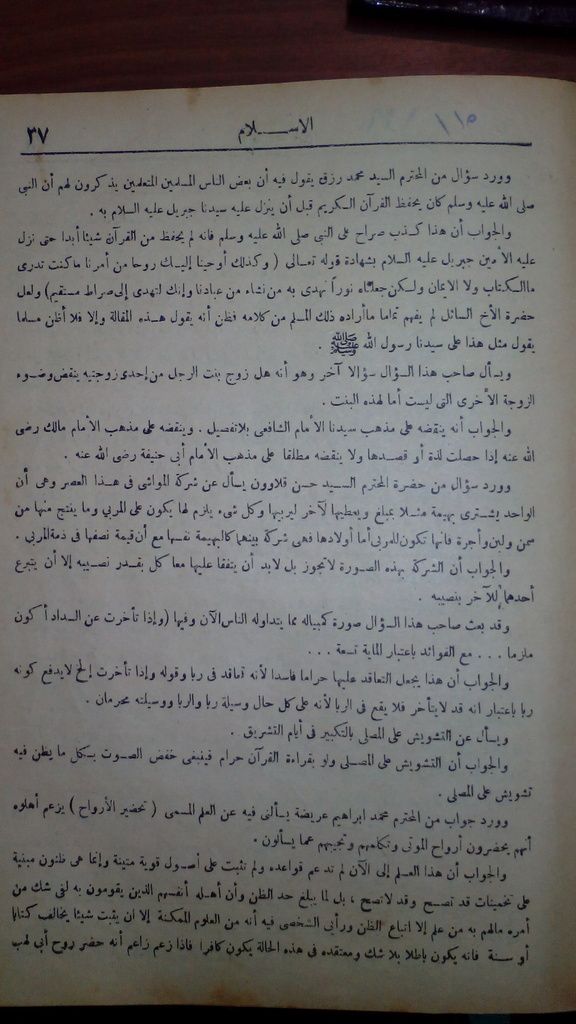 ١١٥
الاســـلام
٣٧
وورد سؤال من المحترم السيد محمد رزق يقول فيه أن بعض الناس المسلمين المتعلمين يذكرون لهم أن النبي
صلى الله عليه وسلم كان يحفظ القرآن الكريم قبل أن ينزل عليه سيدنا جبريل عليه السلام به .
والجواب أن هذا كذب صراح على النبي صلى الله عليه وسلم فانه لم يحفظ من القرآن شيئا أبدا حتى نزل
عليه الأمين جبريل عليه السلام بشهادة قوله تعالى ( وكذلك أوحينا إليك روحا من أمرنا ما كنت تدرى
ما الكتاب ولا الايمان ولكن جعلناه نوراً نهدى به من نشاء من عبادنا وإنك لتهدى إلى صراط مستقيم) ولعل
حضرة الأخ السائل لم يفهم تماما ما أراده ذلك المسلم من كلامه فظن أنه يقول هذه المقالة وإلا فلا أظن مسلما
يقول مثل هذا على سيدنا رسول الله ﷺ .
ويسأل صاحب هذا السؤال سؤالا آخر وهو أنه هل زوج بنت الرجل من إحدى زوجتيه ينقض وضوء
الزوجة الأخرى التى ليست أما لهذه البنت .
والجواب أنه ينقضه على مذهب سيدنا الأمام الشافعى بلا تفصيل . وينقضه على مذهب الأمام مالك رضى
الله عنه إذا حصلت لذة أو قصدها ولا ينقضه مطلقا على مذهب الأمام أبى حنيفة رضى الله عنه .
وورد سؤال من حضرة المحترم السيد حسن قلاوون يسأل عن شركة المواشى فى هذا العصر وهى أن
الواحد يشترى بهيمة مثلا بمبلغ ويعطيها لآخر ليربيها وكل شىء يلزم لها يكون على المربي وما ينتج منها من
سمن ولبن وأجرة فانها تكون للمربى أما أولادها فهى شركة بينهما كالبهيمة نفسها مع أن قيمة نصفها فى ذمة المربى .
والجواب أن الشركة بهذه الصورة لا تجوز بل لابد أن يتفقا عليها معا كل بقدر نصيبه إلا أن يتبرع
أحدهما للآخر بنصيبه .
وقد بعث صاحب هذا السؤال صورة كمبياله مما يتداوله الناس الآن وفيها (وإذا تأخرت عن السداد أكون
ملزما . . . مع الفوائد باعتبار الماية تسعة . . .
والجواب أن هذا يجعل التعاقد عليها حراما فاسدا لأنه تعاقد فى ربا وقوله وإذا تأخرت إلخ لا يدفع كونه
ربا باعتبار انه قد لا يتأخر فلا يقع فى الربا لأنه على كل حال وسيلة ربا والربا ووسيلته محرمان .
ويسأل عن التشويش على المصلى بالتكبير فى أيام التشريق .
والجواب أن التشويش على المصلى ولو بقراءة القرآن حرام فينبغى خفض الصوت بكل ما يظن فيه
تشويش على المصلى .
وورد جواب من المحترم محمد ابراهيم عريضة يسألنى فيه عن العلم المسمى ( تحضير الأرواح ) يزعم أهلوه
أنهم يحضرون أرواح الموتى وتكلمهم وتجيبهم عما يسألون .
والجواب أن هذا العلم إلى الآن لم تدعم قواعده ولم تثبت على أصول قوية متينة وإنما هى ظنون مبنية
على تخمينات قد تصح وقد لا تصح ، بل لما يبلغ حد الظن وأن أهله أنفسهم الذين يقومون به لفى شك من
أمره مالهم به من علم إلا اتباع الظن ورأيى الشخصى فيه أنه من العلوم الممكنة إلا ان يثبت شيئا يخالف كتابا
أو سنة فانه يكون باطلا بلا شك ومعتقده فى هذه الحالة يكون كافرا فاذا زعم زاعم أنه حضر روح أبى لهب